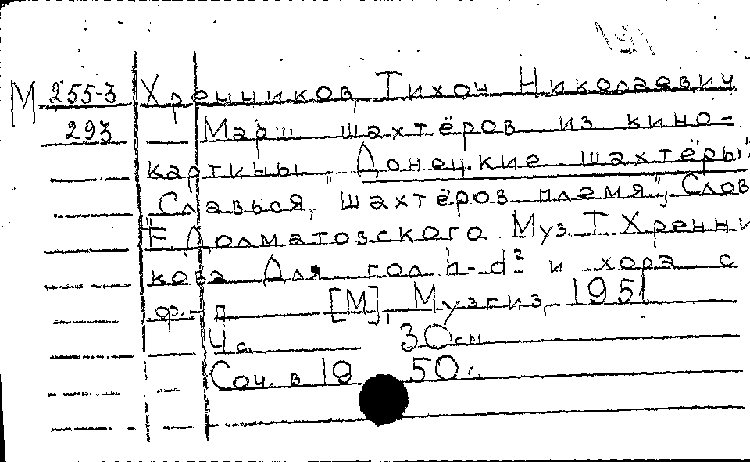 М 255-3 Хренников, Тихон Николаевич
293 Марш шахтёров из кино-
картины "Донецкие шахтёры"
"Славься, шахтёров племя". Слов
Е. Долматовского Муз. Т. Хренни
кова Для гол. h-d² и хора с
ф.-п. [М], Музгиз, 1951
4 с. 30 см
Соч. в 1950 г.